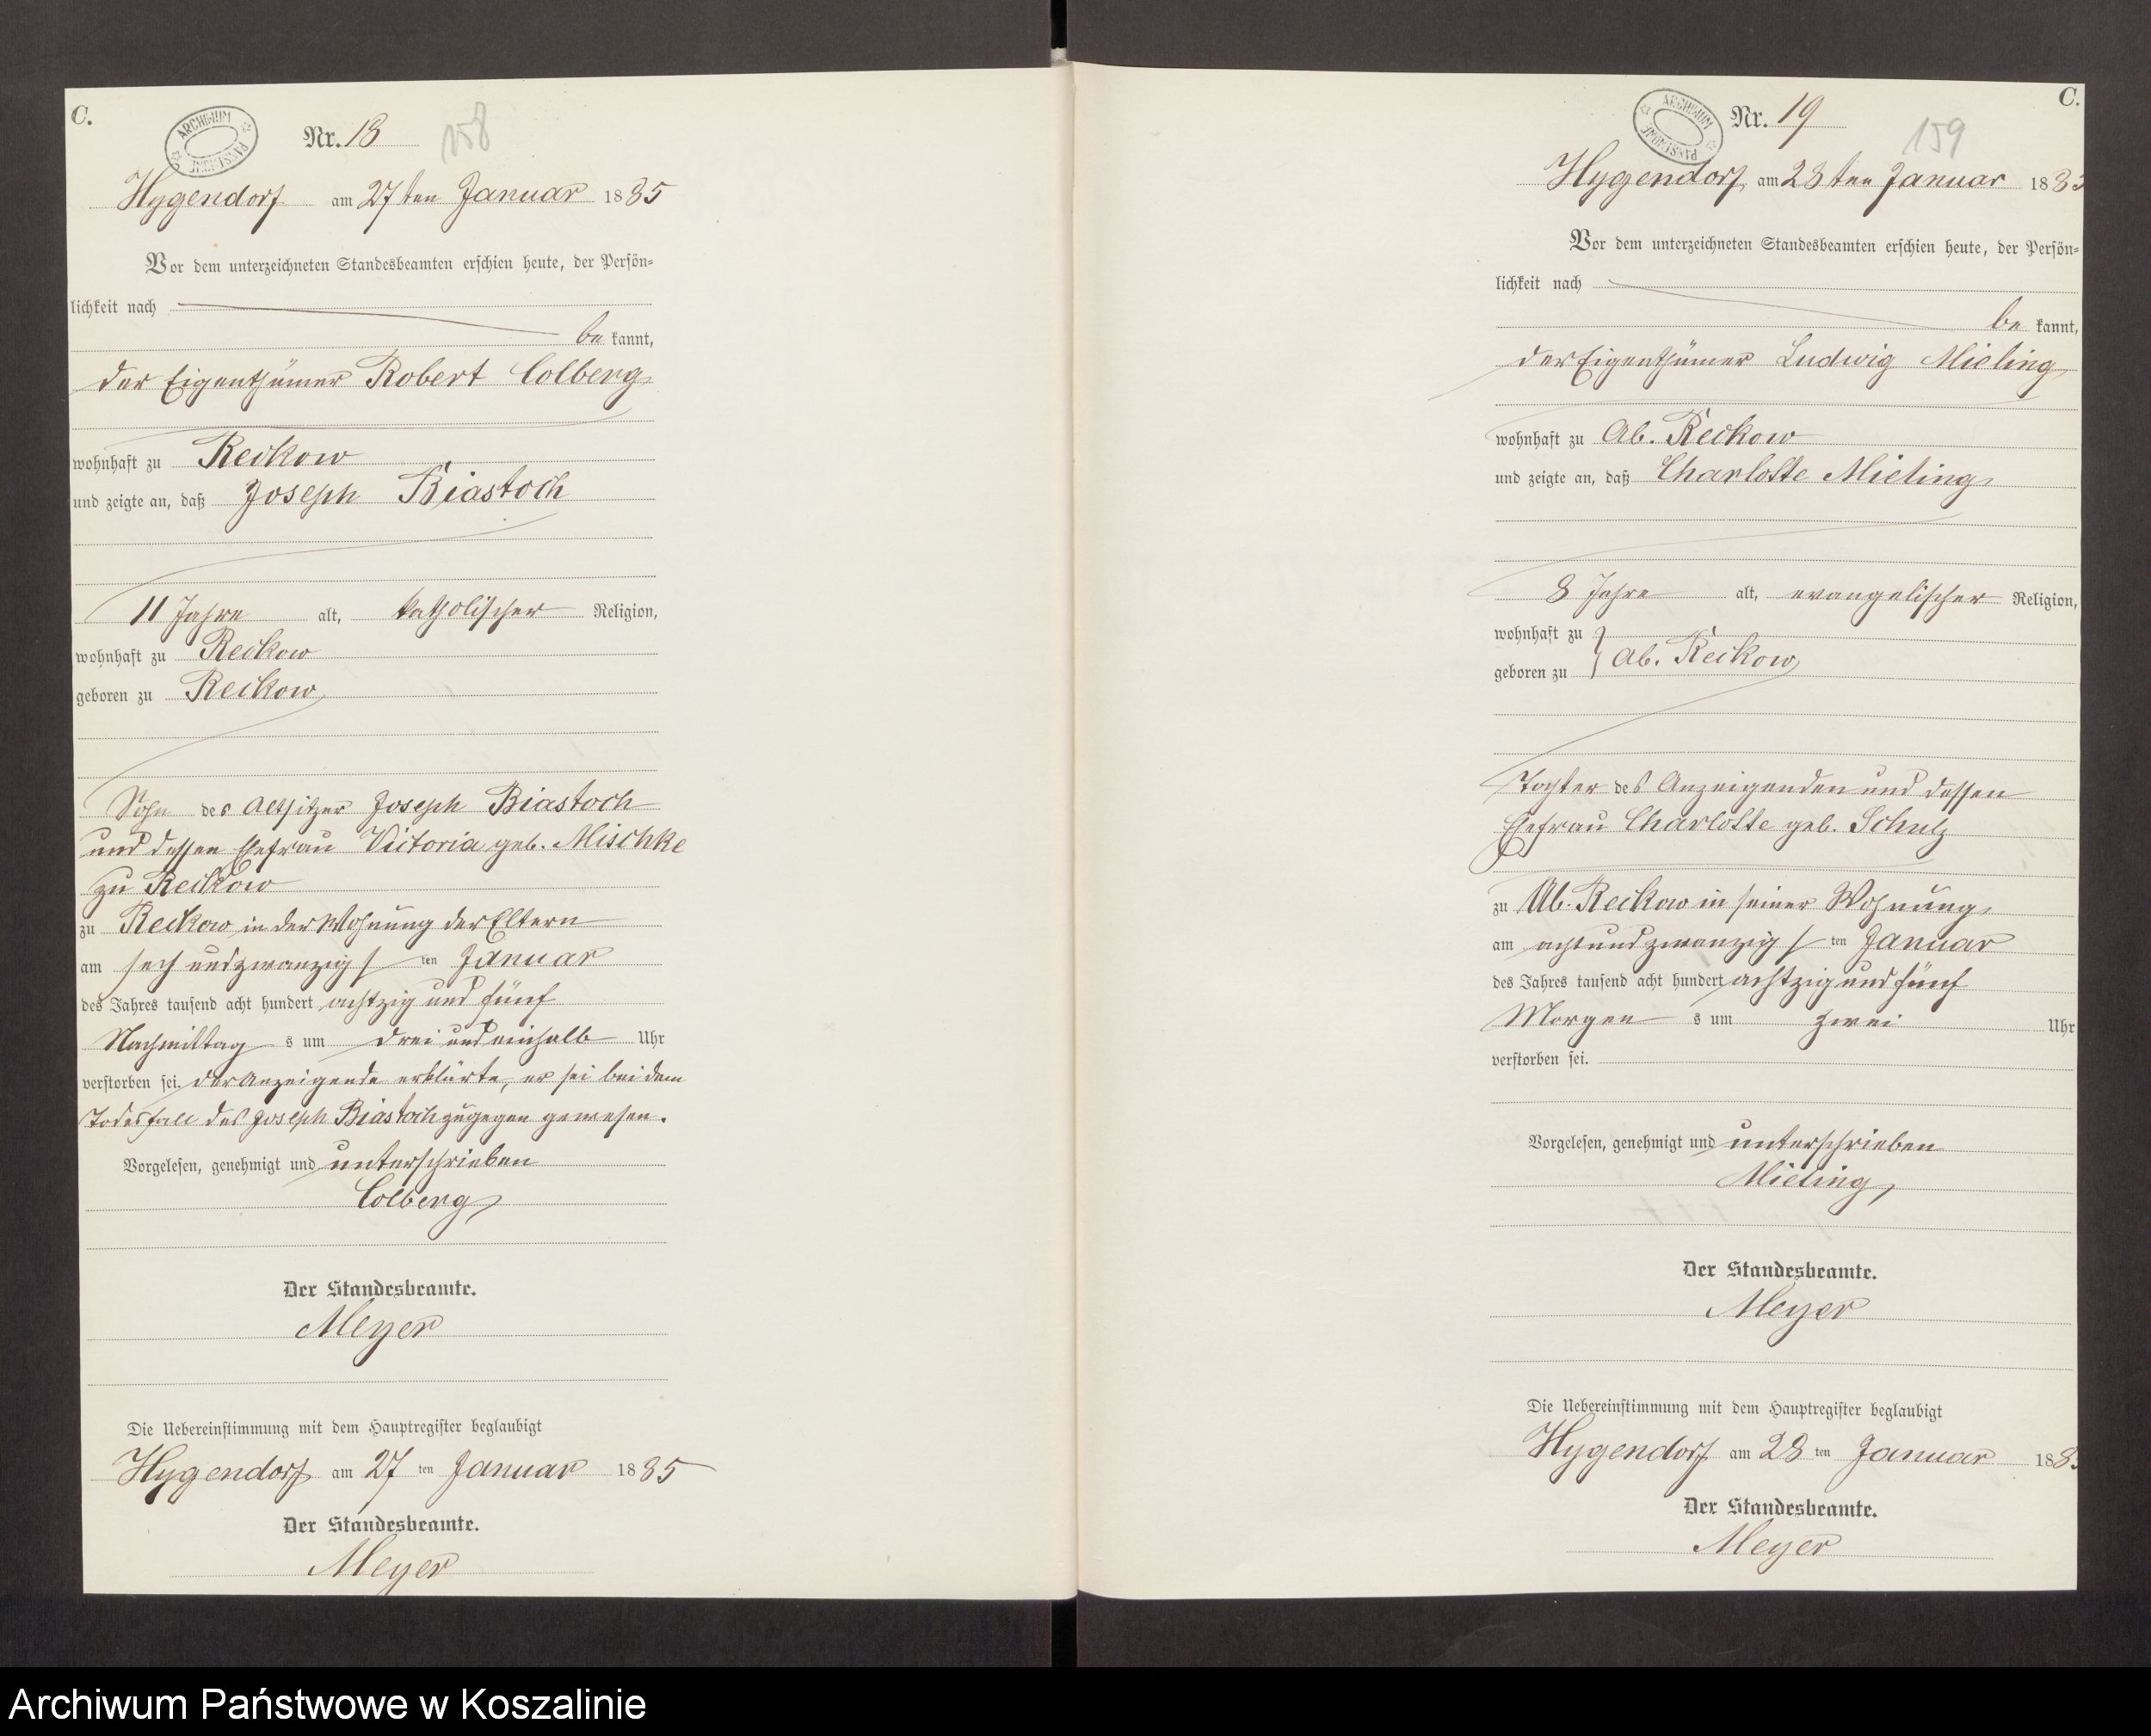 C.
ARCHIWUM PAŃSTWOWE
Nr. 18
158
Hygendorf am 27ten Januar 1885
Vor dem unterzeichneten Standesbeamten erschien heute, der Persön=
lichkeit nach
be kannt,
der Eigenthümer Robert Colberg
wohnhaft zu Reckow
und zeigte an, daß Joseph Biastoch
11 Jahre alt, katholischer Religion,
wohnhaft zu Reckow
geboren zu Reckow
Sohn des Altsitzer Joseph Biastoch
und dessen Ehefrau Victoria geb. Mischke
zu Reckow
zu Reckow in der Wohnung der Eltern
am sech und zwanzigs ten Januar
des Jahres tausend acht hundert achtzig und fünf
Nachmittag s um drei und einhalb Uhr
verstorben sei. der Anzeigende erklärte, er sei bei dem
Todesfall des Joseph Biastoch zugegen gewesen.
Vorgelesen, genehmigt und unterschrieben
Colberg
Der Standesbeamte.
Meyer
Die Uebereinstimmung mit dem Hauptregister beglaubigt
Hygendorf am 27 ten Januar 1885
Der Standesbeamte.
Meyer
C.
ARCHIWUM PAŃSTWOWE
Nr. 19
159
Hygendorf am 28ten Januar 188
Vor dem unterzeichneten Standesbeamten erschien heute, der Persön=
lichkeit nach
be kannt,
der Eigenthümer Ludwig Mieling
wohnhaft zu Ab. Reckow
und zeigte an, daß Charlotte Mieling
8 Jahre alt, evangelischer Religion,
wohnhaft zu
geboren zu } Ab. Reckow
Tochter des Anzeigenden und dessen
Ehefrau Charlotte geb. Schulz
zu Ab. Reckow in seiner Wohnung
am acht und zwanzigs ten Januar
des Jahres tausend acht hundert achtzig und fünf
Morgen s um zwei Uhr
verstorben sei.
Vorgelesen, genehmigt und unterschrieben
Mieling
Der Standesbeamte.
Meyer
Die Uebereinstimmung mit dem Hauptregister beglaubigt
Hygendorf am 28 ten Januar 188
Der Standesbeamte.
Meyer
Archiwum Państwowe w Koszalinie